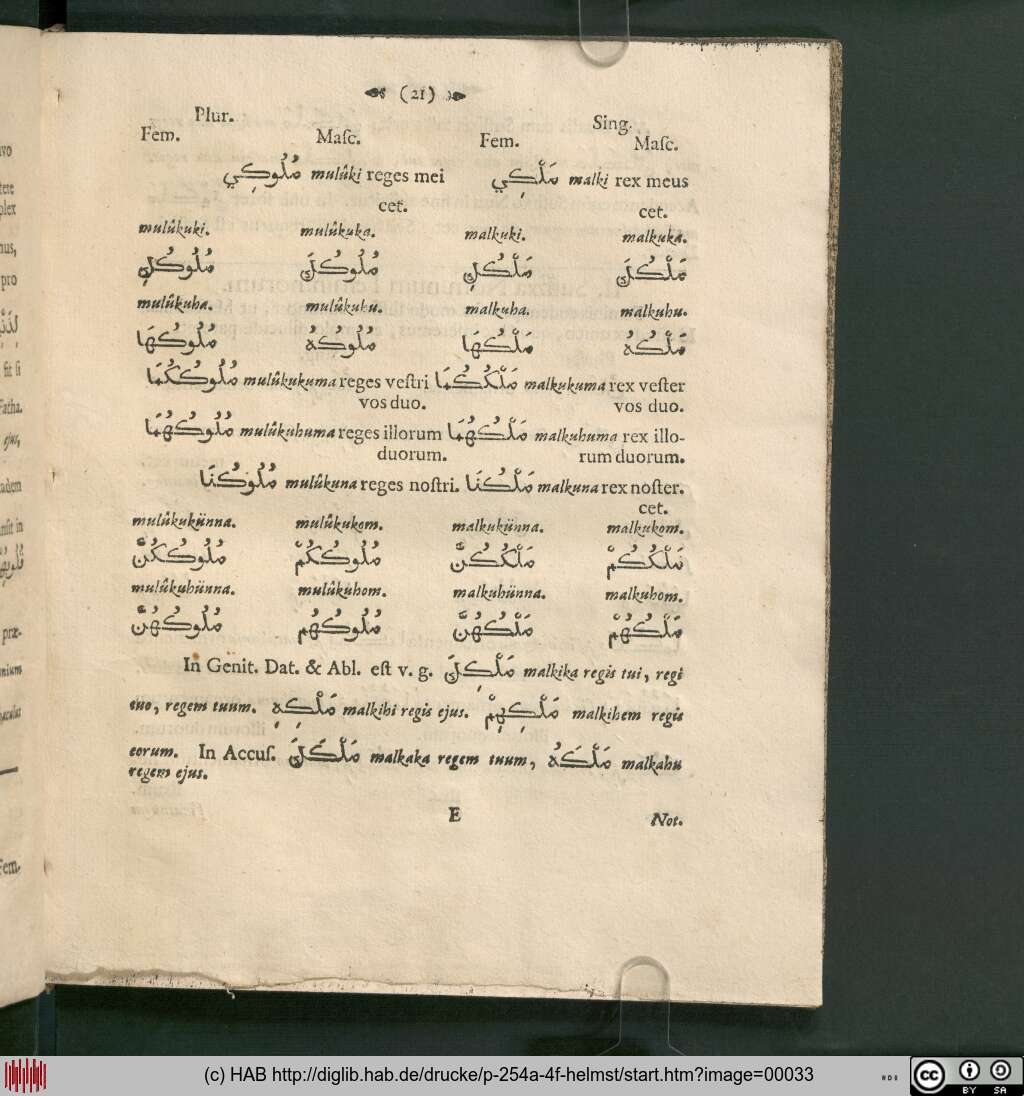 (21)
Plur. Sing.
Fem. Masc. Fem. Masc.
مُلُوكِي mulûki reges mei مَلْكِي malki rex meus
cet. cet.
mulûkuki. mulûkuka. malkuki. malkuka.
مُلُوكُكِ مُلُوكُكَ مَلْكُكِ مَلْكُكَ
mulûkuha. mulûkuhu. malkuha. malkuhu.
مُلُوكُهَا مُلُوكُهُ مَلْكُهَا مَلْكُهُ
مُلُوكُكُمَا mulûkukuma reges vestri مَلْكُكُمَا malkukuma rex vester
vos duo. vos duo.
مُلُوكُهُمَا mulûkuhuma reges illorum مَلْكُهُمَا malkuhuma rex illo-
duorum. rum duorum.
مُلُوكُنَا mulûkuna reges nostri. مَلْكُنَا malkuna rex noster.
cet.
mulûkukünna. mulûkukom. malkukünna. malkukom.
مُلُوكُكُنَّ مُلُوكُكُمْ مَلْكُكُنَّ مَلْكُكُمْ
mulûkuhünna. mulûkuhom. malkuhünna. malkuhom.
مُلُوكُهُنَّ مُلُوكُهُم مَلْكُهُنَّ مَلْكُهُمْ
In Genit. Dat. & Abl. est v. g. مَلْكِكَ malkika regis tui, regi
tuo, regem tuum. مَلْكِهِ malkihi regis ejus. مَلْكِهِمْ malkihem regis
eorum. In Accus. مَلْكَكَ malkaka regem tuum, مَلْكَهُ malkahu
regem ejus.
E Not.
(c) HAB http://diglib.hab.de/drucke/p-254a-4f-helmst/start.htm?image=00033
cc BY SA